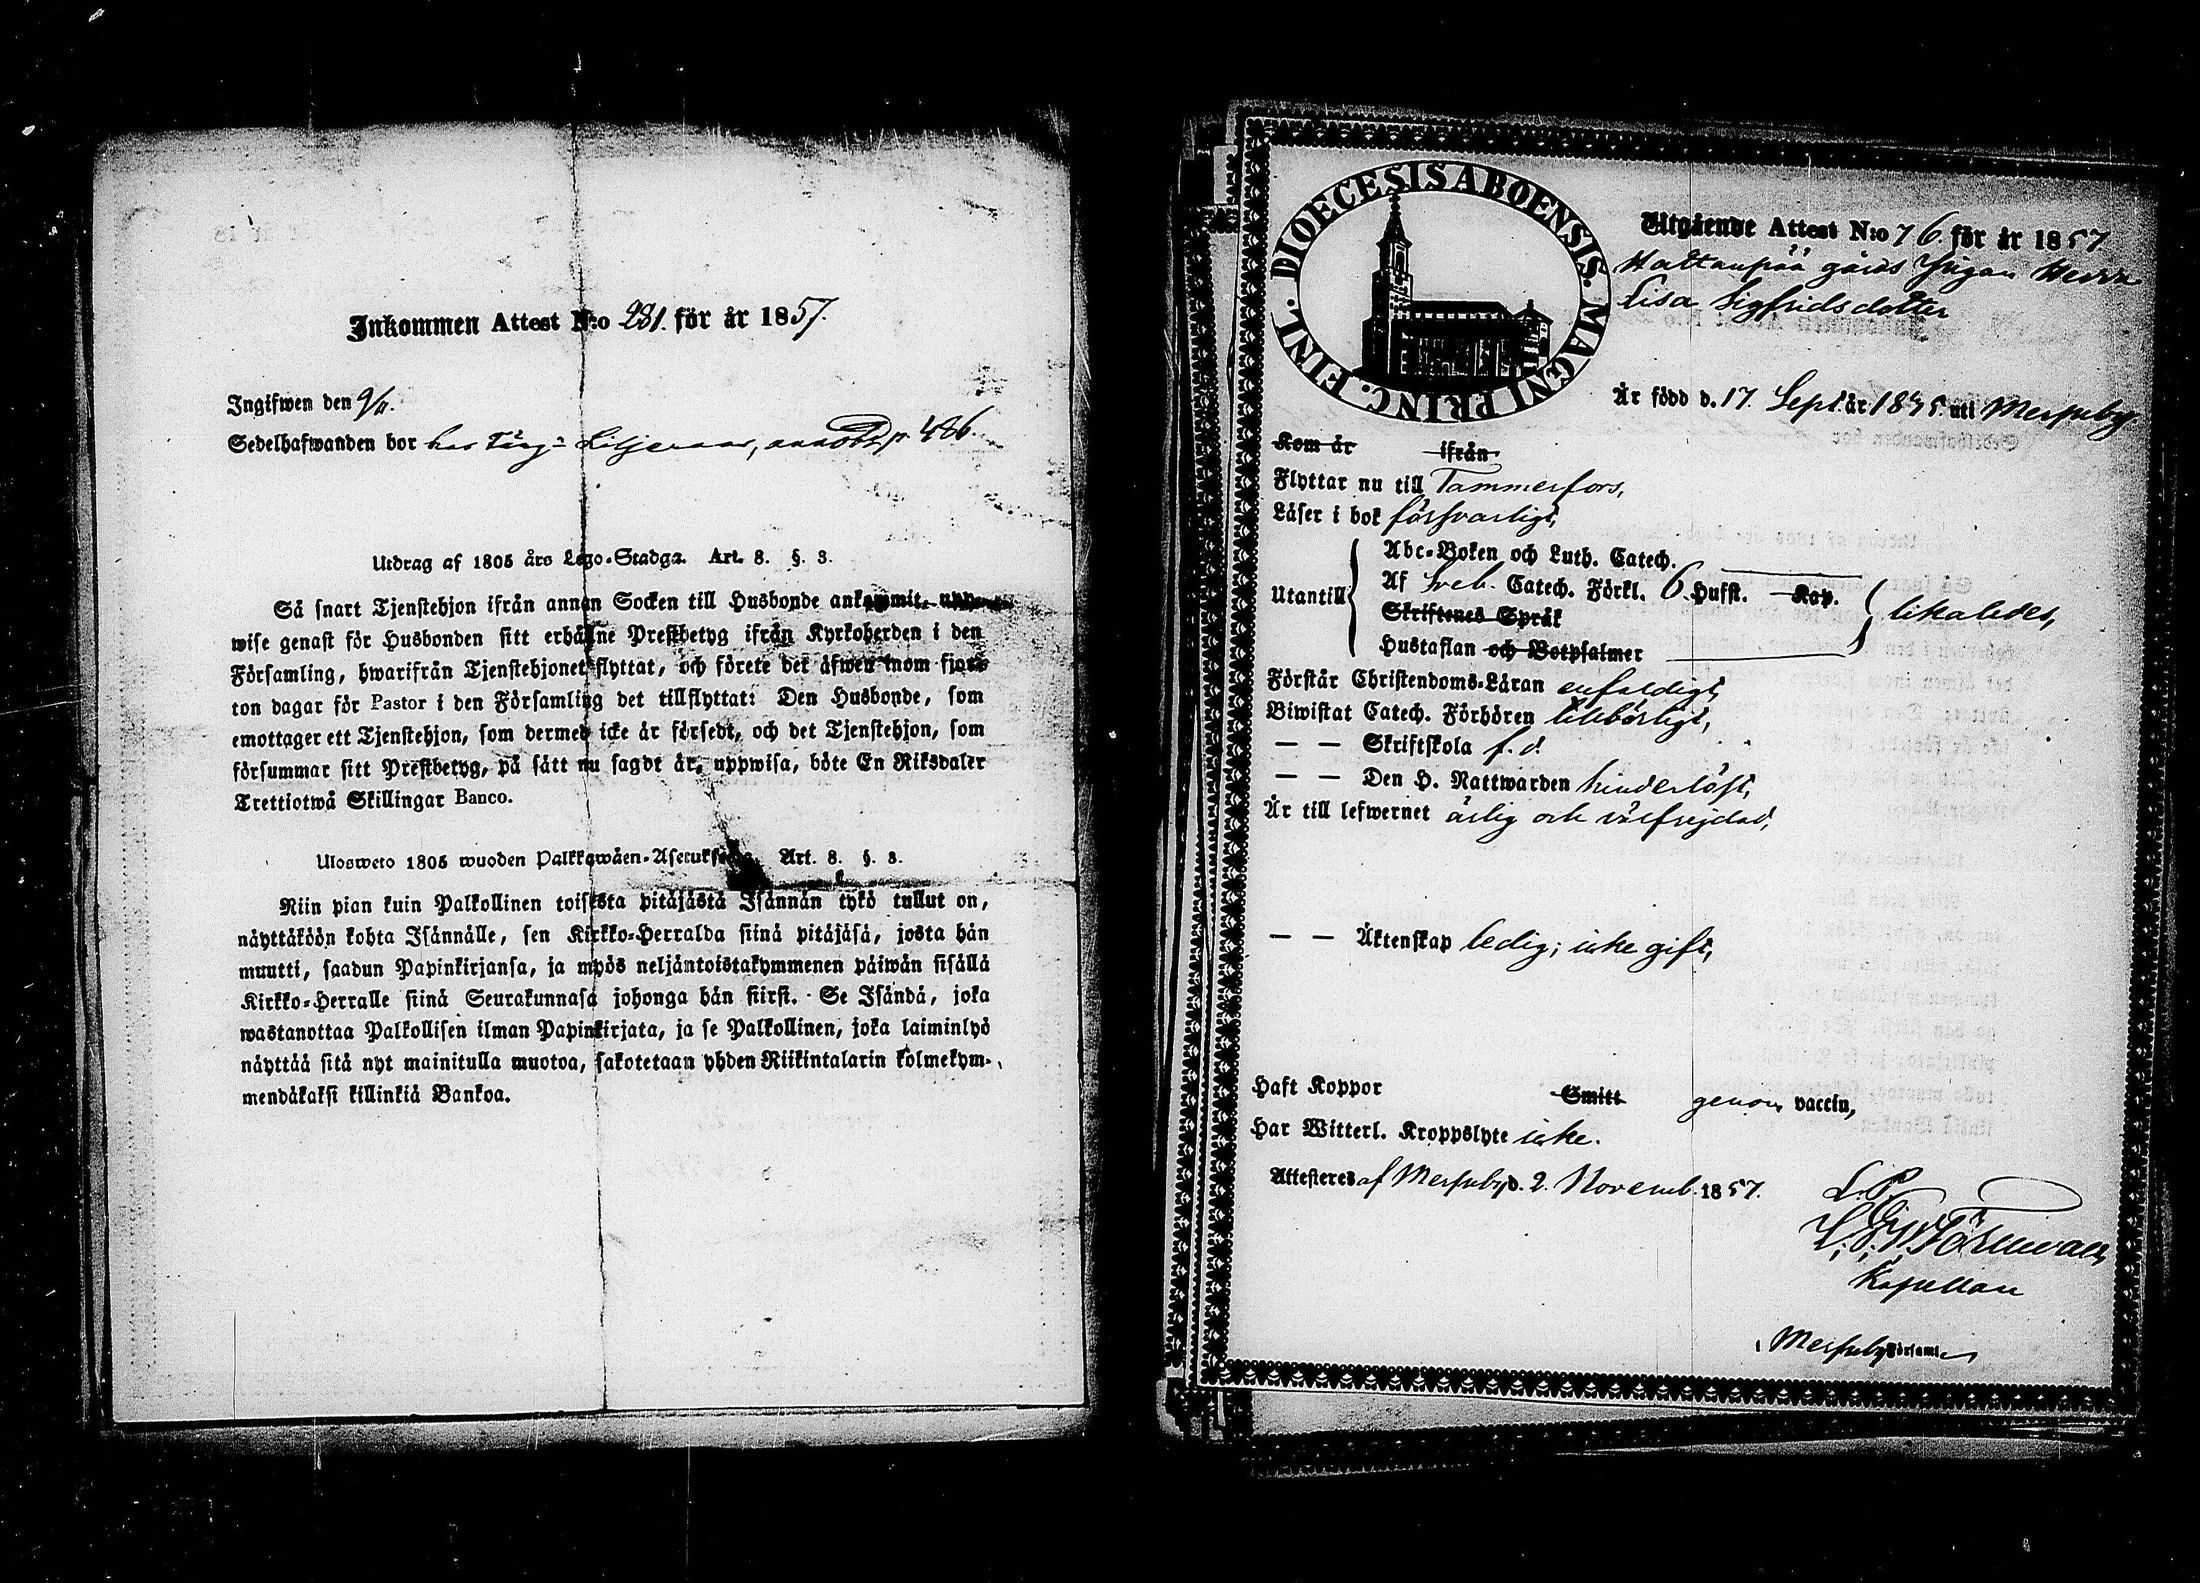 Inkommen Attest N:o 281. för år 1857.
Ingifwen den 9/11.
Sedelhafwanden bor hos Färg: Liljeroos, p. 486.
Utdrag af 1805 års Lego-Stadga. Art. 8. §. 3.
Så snart Tjenstehjon ifrån annan Socken till Husbonde ankommit, upp-
wise genast för Husbonden sitt erhållne Prestbetyg ifrån Kyrkoherden i den
Församling, hwarifrån Tjenstehjonet flyttat, och förete det äfwen inom fjor-
ton dagar för Pastor i den Församling det tillflyttat: Den Husbonde, som
emottager ett Tjenstehjon, som dermed icke är försedt, och det Tjenstehjon, som
försummar sitt Prestbetyg, på sätt nu sagdt är, uppwisa, böte En Riksdaler
Trettiotwå Skillingar Banco.
Ulosweto 1805 wuoden Palkkawäen-Asetuksesta. Art. 8. §. 3.
Niin pian kuin Palkollinen toisesta pitäjästä Isännän tykö tullut on,
näyttäköön kohta Isännälle, sen Kirkko-Herralda siinä pitäjäsä, josta hän
muutti, saadun Papinkirjansa, ja myös neljäntoistakymmenen päiwän sisällä
Kirkko-Herralle siinä Seurakunnasa johonga hän siirst. Se Isändä, joka
wastanottaa Palkollisen ilman Papinkirjata, ja se Palkollinen, joka laiminlyö
näyttää sitä nyt mainitulla muotoa, sakotetaan yhden Riikintalarin kolmekym-
mendäkaksi killinkiä Bankoa.
DIOECESIS ABOENSIS. MAGNI PRINC. FINL.
Utgående Attest N:o 76. för år 1857.
Hattanpää gårds Pigan
Lisa Sigfridsdotter
Är född d. 17. Sept. år 1835. uti Messuby.
Kom år ifrån
Flyttar nu till Tammerfors,
Läser i bok försvarligt,
Utantill
Abc-Boken och Luth. Catech.
Af Sveb. Catech. Förkl. 6. Hufst. Kap.
Skriftenes Språk
Hustaflan och Botpsalmer
likaledes,
Förstår Christendoms-Läran enfaldigt,
Biwistat Catech. Förhören tillbörligt,
— — Skriftskola f. d.
— — Den H. Nattwarden hinderlöst,
Är till lefwernet ärlig och välfrejdad,
— — Äktenskap ledig; icke gift,
Haft Koppor Smitt genom vaccin,
Har Witterl. Kroppslyte icke.
Attesteres af Messuby d. 2. Novemb. 1857.
L. P.
Törnwall,
Kapellan
i Messuby Församl.